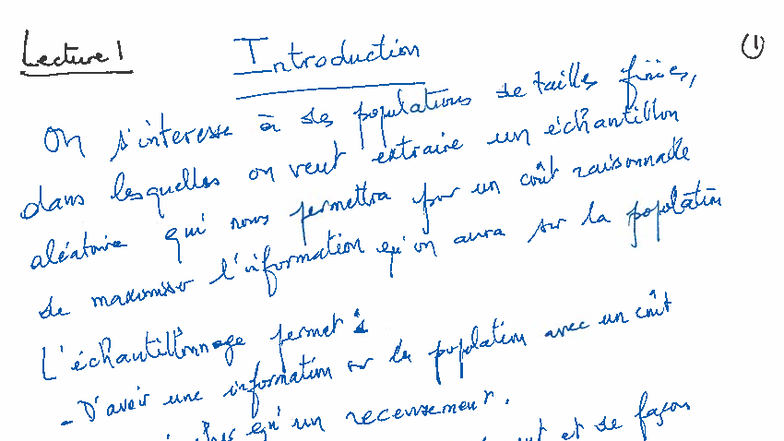 Lecture 1
Introduction
1
On s'interesse à des populations de tailles finies,
dans lesquelles on veut extraire un échantillon
aléatoire qui nous permettra pour un coût raisonnable
de maximiser l'information qu'on aura sur la population
L'échantillonnage permet :
- D'avoir une information sur la population avec un coût
qu'un recensement.
et de façon